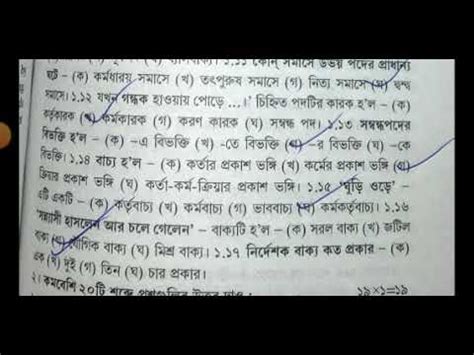 ব্যাসবাক্য। ১.১১ কোন্ সমাসে উভয় পদের প্রাধান্য
ঘটে – (ক) কর্মধারয় সমাসে (খ) তৎপুরুষ সমাসে (গ) নিত্য সমাসে (ঘ) দ্বন্দ্ব
সমাসে। ১.১২ যখন গন্ধক হাওয়ায় পোড়ে ...।' চিহ্নিত পদটির কারক হ'ল – (ক)
কর্তৃকারক (খ) কর্মকারক (গ) করণ কারক (ঘ) সম্বন্ধ পদ। ১.১৩ সম্বন্ধপদের
বিভক্তি হ'ল – (ক) -এ বিভক্তি (খ) -তে বিভক্তি (গ) -র বিভক্তি (ঘ) -কে
বিভক্তি। ১.১৪ বাচ্য হ'ল – (ক) কর্তার প্রকাশ ভঙ্গি (খ) কর্মের প্রকাশ ভঙ্গি (গ)
ক্রিয়ার প্রকাশ ভঙ্গি (ঘ) কর্তা-কর্ম-ক্রিয়ার প্রকাশ ভঙ্গি। ১.১৫ 'ঘুড়ি ওড়ে' –
এটি একটি – (ক) কর্তৃবাচ্য (খ) কর্মবাচ্য (গ) ভাববাচ্য (ঘ) কর্মকর্তৃবাচ্য। ১.১৬
'সন্ন্যাসী হাসলেন আর চলে গেলেন' – বাক্যটি হ'ল – (ক) সরল বাক্য (খ) জটিল
বাক্য (গ) যৌগিক বাক্য (ঘ) মিশ্র বাক্য। ১.১৭ নির্দেশক বাক্য কত প্রকার – (ক)
এক (খ) দুই (গ) তিন (ঘ) চার প্রকার।
২। কমবেশি ২০টি শব্দে প্রশ্নগুলির উত্তর দাও : ১৯×১=১৯